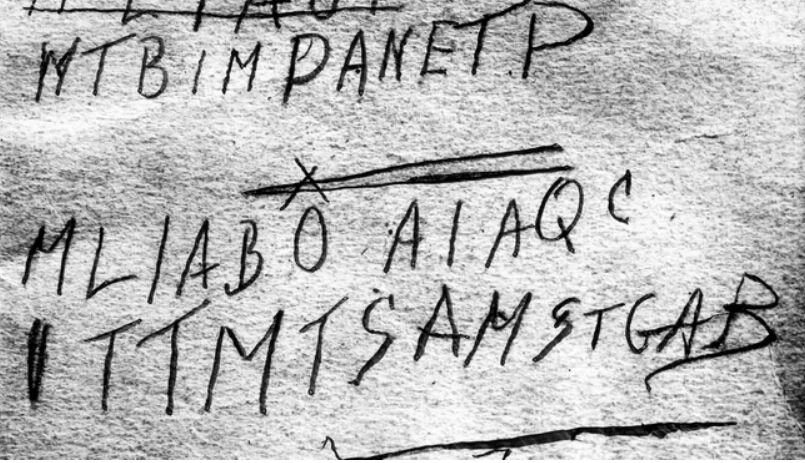 NTBIMPANETP
MLIABO AIAQC
ITTMTSAMSTGAB